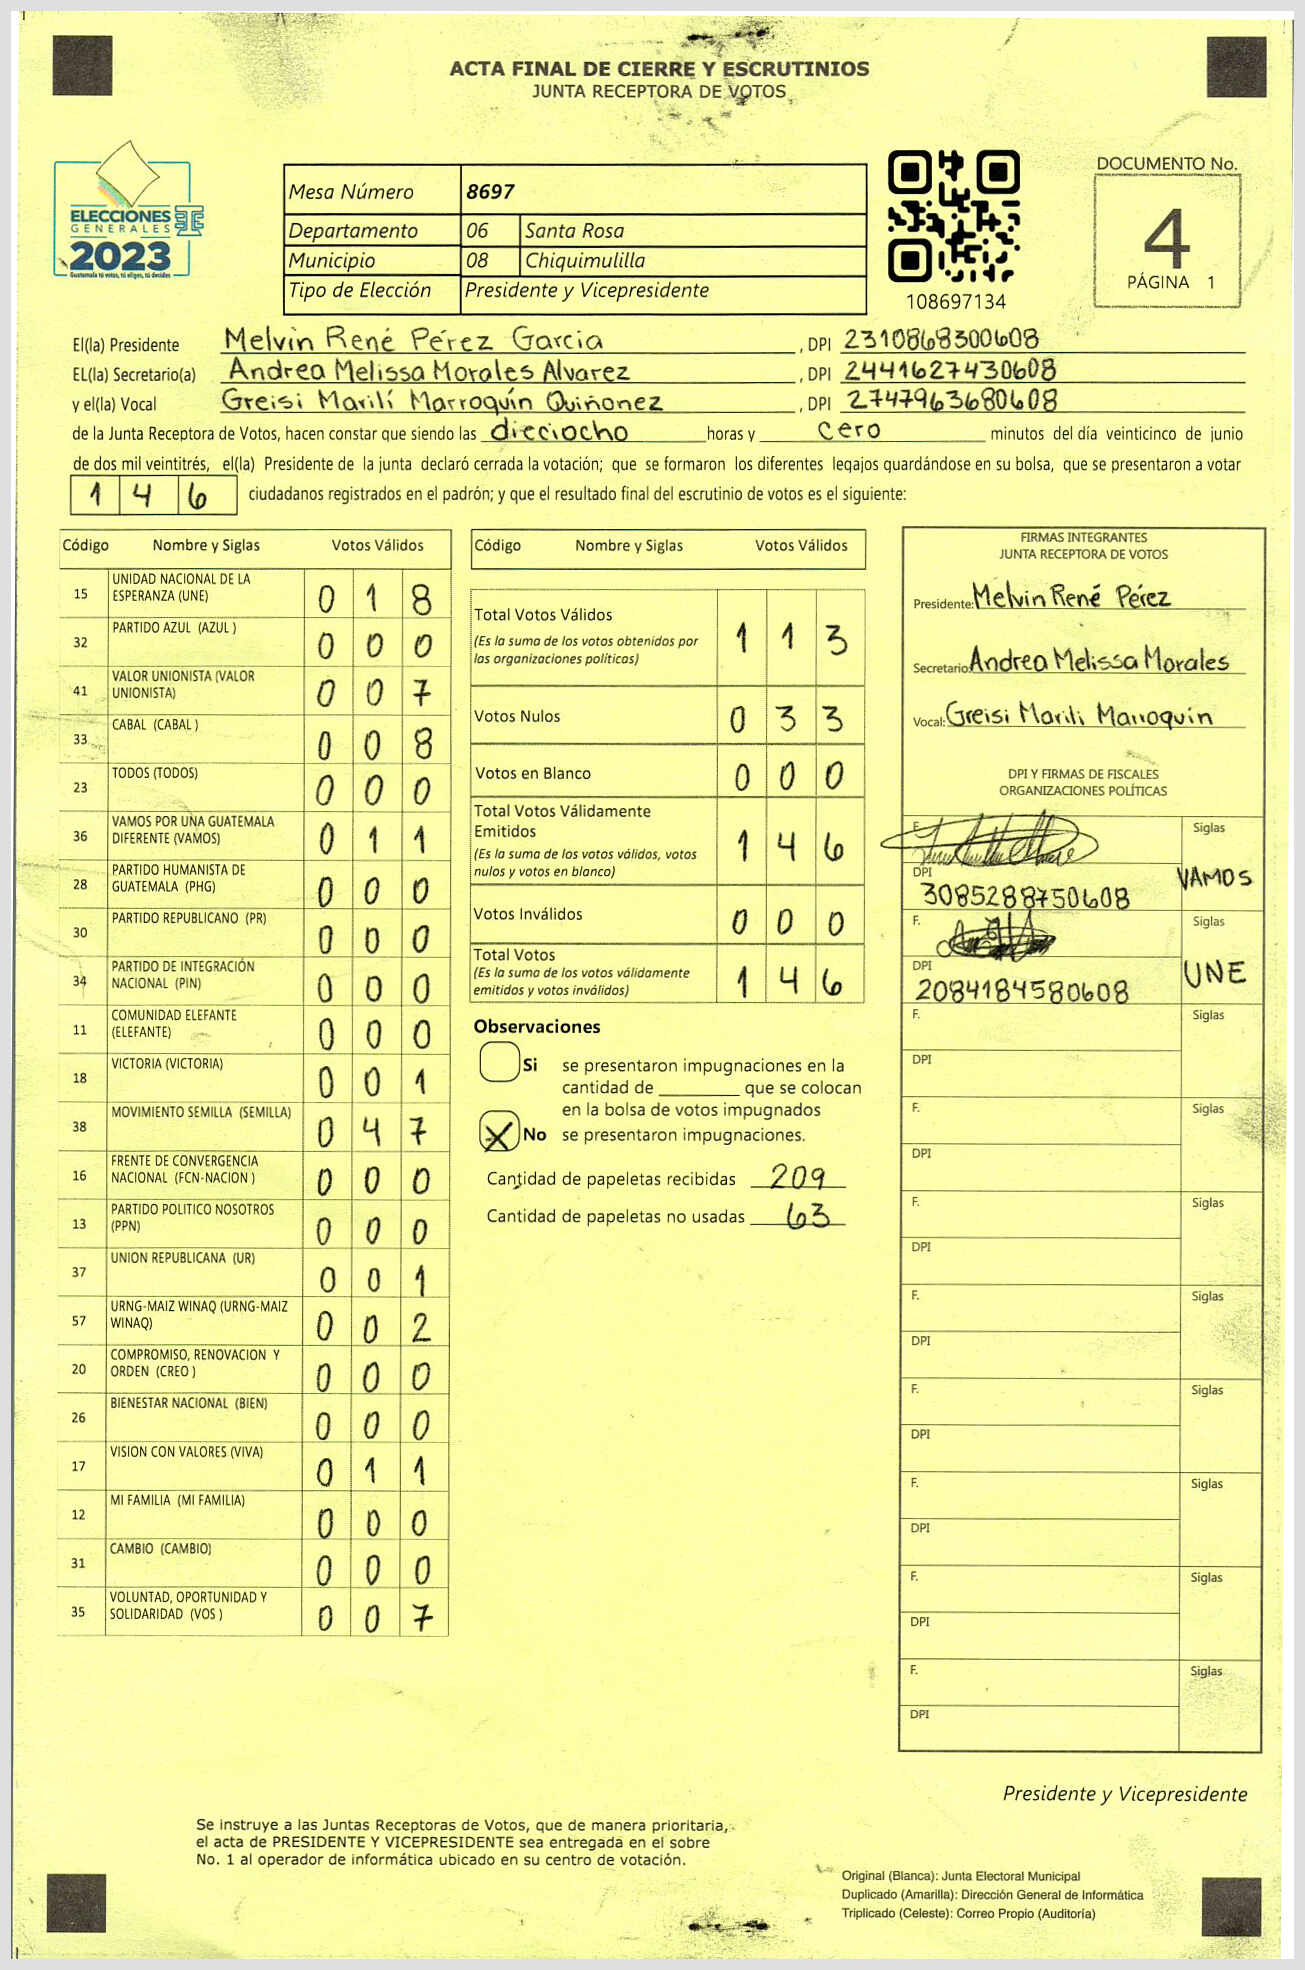 ACTA FINAL DE CIERRE Y ESCRUTINIOS
JUNTA RECEPTORA DE VOTOS
ELECCIONES
GENERALES
2023
Guatemala tú votas, tú eliges, tú decides
Mesa Número 8697
Departamento 06 Santa Rosa
Municipio 08 Chiquimulilla
Tipo de Elección Presidente y Vicepresidente
108697134
DOCUMENTO No.
4
PÁGINA 1
El(la) Presidente Melvin René Pérez Garcia , DPI 2310868300608
EL(la) Secretario(a) Andrea Melissa Morales Alvarez , DPI 2441627430608
y el(la) Vocal Greisi Marilí Marroquín Quiñonez , DPI 2747963680608
de la Junta Receptora de Votos, hacen constar que siendo las dieciocho horas y cero minutos del día veinticinco de junio
de dos mil veintitrés, el(la) Presidente de la junta declaró cerrada la votación; que se formaron los diferentes legajos guardándose en su bolsa, que se presentaron a votar
146 ciudadanos registrados en el padrón; y que el resultado final del escrutinio de votos es el siguiente:
Código Nombre y Siglas Votos Válidos
15 UNIDAD NACIONAL DE LA ESPERANZA (UNE) 0 1 8
32 PARTIDO AZUL (AZUL ) 0 0 0
41 VALOR UNIONISTA (VALOR UNIONISTA) 0 0 7
33 CABAL (CABAL ) 0 0 8
23 TODOS (TODOS) 0 0 0
36 VAMOS POR UNA GUATEMALA DIFERENTE (VAMOS) 0 1 1
28 PARTIDO HUMANISTA DE GUATEMALA (PHG) 0 0 0
30 PARTIDO REPUBLICANO (PR) 0 0 0
34 PARTIDO DE INTEGRACIÓN NACIONAL (PIN) 0 0 0
11 COMUNIDAD ELEFANTE (ELEFANTE) 0 0 0
18 VICTORIA (VICTORIA) 0 0 1
38 MOVIMIENTO SEMILLA (SEMILLA) 0 4 7
16 FRENTE DE CONVERGENCIA NACIONAL (FCN-NACION ) 0 0 0
13 PARTIDO POLITICO NOSOTROS (PPN) 0 0 0
37 UNION REPUBLICANA (UR) 0 0 1
57 URNG-MAIZ WINAQ (URNG-MAIZ WINAQ) 0 0 2
20 COMPROMISO, RENOVACION Y ORDEN (CREO ) 0 0 0
26 BIENESTAR NACIONAL (BIEN) 0 0 0
17 VISION CON VALORES (VIVA) 0 1 1
12 MI FAMILIA (MI FAMILIA) 0 0 0
31 CAMBIO (CAMBIO) 0 0 0
35 VOLUNTAD, OPORTUNIDAD Y SOLIDARIDAD (VOS ) 0 0 7
Código Nombre y Siglas Votos Válidos
Total Votos Válidos 1 1 3
(Es la suma de los votos obtenidos por
las organizaciones políticas)
Votos Nulos 0 3 3
Votos en Blanco 0 0 0
Total Votos Válidamente
Emitidos 1 4 6
(Es la suma de los votos válidos, votos
nulos y votos en blanco)
Votos Inválidos 0 0 0
Total Votos 1 4 6
(Es la suma de los votos válidamente
emitidos y votos inválidos)
Observaciones
Si se presentaron impugnaciones en la
cantidad de ________ que se colocan
en la bolsa de votos impugnados
X No se presentaron impugnaciones.
Cantidad de papeletas recibidas 209
Cantidad de papeletas no usadas 63
FIRMAS INTEGRANTES
JUNTA RECEPTORA DE VOTOS
Presidente: Melvin René Pérez
Secretario: Andrea Melissa Morales
Vocal: Greisi Marili Marroquín
DPI Y FIRMAS DE FISCALES
ORGANIZACIONES POLÍTICAS
F. Siglas
DPI 3085288750608 VAMOS
F. Siglas
DPI 2084184580608 UNE
F. Siglas
DPI
F. Siglas
DPI
F. Siglas
DPI
F. Siglas
DPI
F. Siglas
DPI
F. Siglas
DPI
F. Siglas
DPI
F. Siglas
DPI
Presidente y Vicepresidente
Se instruye a las Juntas Receptoras de Votos, que de manera prioritaria,
el acta de PRESIDENTE Y VICEPRESIDENTE sea entregada en el sobre
No. 1 al operador de informática ubicado en su centro de votación.
Original (Blanca): Junta Electoral Municipal
Duplicado (Amarilla): Dirección General de Informática
Triplicado (Celeste): Correo Propio (Auditoría)